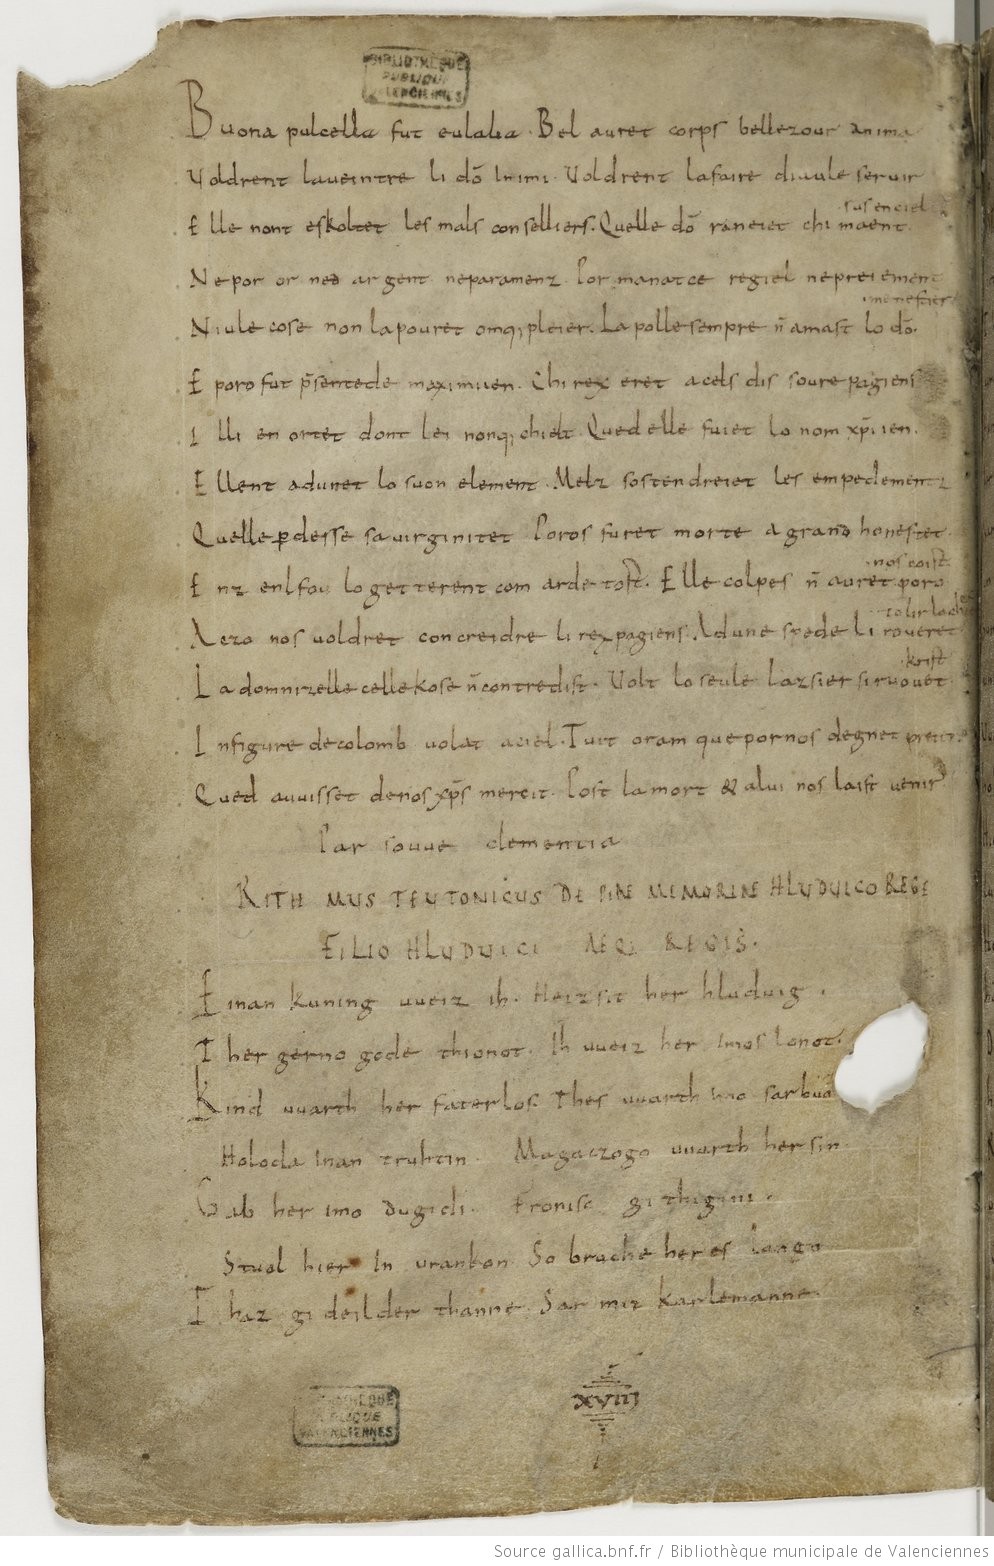 BIBLIOTHEQUE
PUBLIQUE
VALENCIENNES
Buona pulcella fut eulalia. Bel auret corps bellezour anima
Voldrent laueintre li dõ Inimi. Voldrent lafaire diaule seruir
sus en ciel
E lle nont eskoltet les mals conselliers. Quelle dõ raneiet chi maent
Ne por or ned argent neparamenz. Por manatce regiel nepreiement
Niule cose non lapouret omq; pleier. La polle sempre n̄ amast lo dõ
menestier
E poro fut p̄sentede maximiien. Chi rex eret a cels dis soure pagiens
I lli en ortet dont lei nonq; chielt. Qued elle fuiet lo nom xp̄iien.
E llent adunet lo suon element. Melz sostendreiet les empedementz
Quelle p̱desse sa uirginitet. Poros furet morte a grand honestet
E nz enlfou lo getterent com arde tost. Elle colpes n̄ auret poro
nos coist
A czo nos uoldret concreidre li rex pagiens. Ad une spede li roueret
tolir lo chef
L a domnizelle celle kose n̄ contredist. Uolt lo seule lazsier si ruouet
krist
I nfigure de colomb uolat aciel. Tuit oram que por nos degnet preier
Qued auuisset de nos xp̄s mercit. Post la mort & a lui nos laist uenir
Par souue clementia
RITHMUS TEUTONICUS DE PIAE MEMORIAE HLUDUICO REGE
FILIO HLUDUICI AEQ; REGIS.
Einan kuning uueiz ih. Heizsit her hluduig.
Ther gerno gode thionot. Ih uueiz her Imos lonot.
Kind uuarth her faterlos. Thes uuarth Imo sar buoz
Holoda Inan truhtin. Magaczogo uuarth her sin
Gab her imo dugidi. Fronisc githigini.
Stual hier In urankon So bruche her es lango
Thaz gideilder thanne. Sar mit karlemanne.
XVIII
BIBLIOTHEQUE
PUBLIQUE
VALENCIENNES
Source gallica.bnf.fr / Bibliothèque municipale de Valenciennes